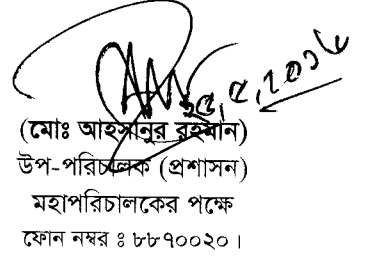 ২৫,৫,২০১৬
(মোঃ আহসানুর রহমান)
উপ-পরিচালক (প্রশাসন)
মহাপরিচালকের পক্ষে
ফোন নম্বর ঃ ৮৮৭০০২০।